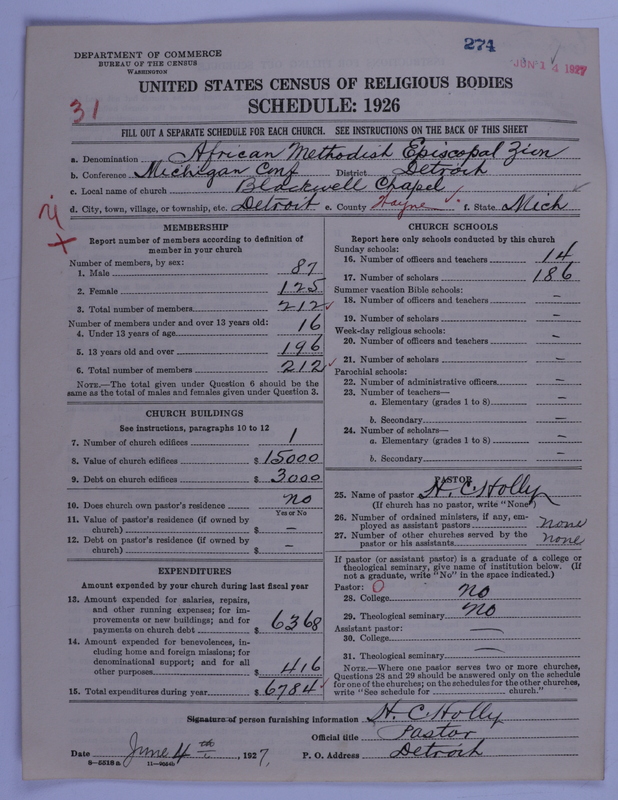 274
JUN 14 1927
DEPARTMENT OF COMMERCE
BUREAU OF THE CENSUS
WASHINGTON
UNITED STATES CENSUS OF RELIGIOUS BODIES
31
SCHEDULE: 1926
FILL OUT A SEPARATE SCHEDULE FOR EACH CHURCH. SEE INSTRUCTIONS ON THE BACK OF THIS SHEET
a. Denomination African Methodish Episcopal Zion
b. Conference Michigan Conf District Detroih
c. Local name of church Blackwell Chapel
d. City, town, village, or township, etc. Detroit e. County Wayne f. State Mich
MEMBERSHIP
Report number of members according to definition of
member in your church
Number of members, by sex:
1. Male 87
2. Female 125
3. Total number of members 212
Number of members under and over 13 years old:
4. Under 13 years of age 16
5. 13 years old and over 196
6. Total number of members 212
NOTE.—The total given under Question 6 should be the
same as the total of males and females given under Question 3.
CHURCH BUILDINGS
See instructions, paragraphs 10 to 12
7. Number of church edifices 1
8. Value of church edifices $ 15000
9. Debt on church edifices $ 3000
10. Does church own pastor's residence no
Yes or No
11. Value of pastor's residence (if owned by
church) $ —
12. Debt on pastor's residence (if owned by
church) $ —
EXPENDITURES
Amount expended by your church during last fiscal year
13. Amount expended for salaries, repairs,
and other running expenses; for im-
provements or new buildings; and for
payments on church debt $ 6368
14. Amount expended for benevolences, in-
cluding home and foreign missions; for
denominational support; and for all
other purposes $ 416
15. Total expenditures during year $ 6784
CHURCH SCHOOLS
Report here only schools conducted by this church
Sunday schools:
16. Number of officers and teachers 14
17. Number of scholars 186
Summer vacation Bible schools:
18. Number of officers and teachers —
19. Number of scholars —
Week-day religious schools:
20. Number of officers and teachers —
21. Number of scholars —
Parochial schools:
22. Number of administrative officers —
23. Number of teachers—
a. Elementary (grades 1 to 8) —
b. Secondary —
24. Number of scholars—
a. Elementary (grades 1 to 8) —
b. Secondary —
PASTOR
25. Name of pastor H. C Holly
(If church has no pastor, write "None")
26. Number of ordained ministers, if any, em-
ployed as assistant pastors none
27. Number of other churches served by the
pastor or his assistants none
If pastor (or assistant pastor) is a graduate of a college or
theological seminary, give name of institution below. (If
not a graduate, write "No" in the space indicated.)
Pastor: 0
28. College no
29. Theological seminary no
Assistant pastor:
30. College —
31. Theological seminary —
NOTE.—Where one pastor serves two or more churches,
Questions 28 and 29 should be answered only on the schedule
for one of the churches; on the schedules for the other churches,
write "See schedule for church."
Signature of person furnishing information H. C Holly
Official title Pastor
Date June 4 th, 1927, P. O. Address Detroih
8—5518a